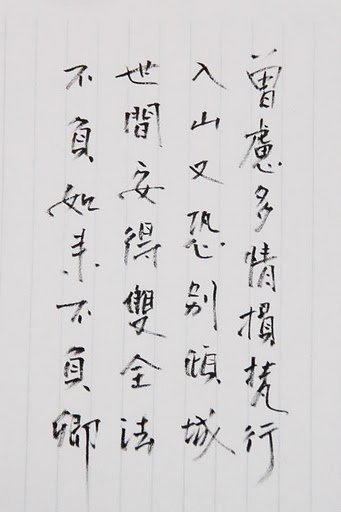 曾慮多情損梵行
入山又恐別傾城
世間安得雙全法
不負如来不負卿